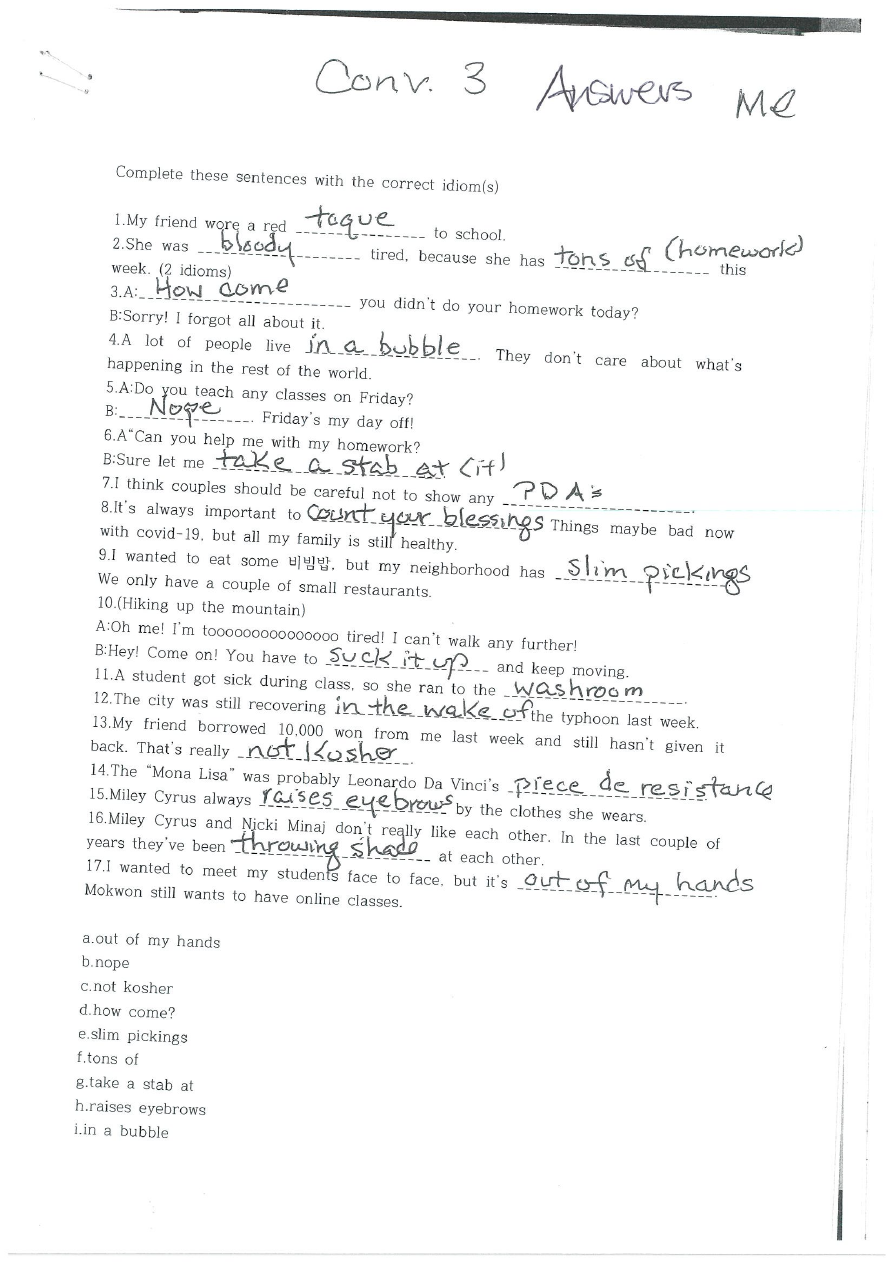 Conv. 3 Answers Me
Complete these sentences with the correct idiom(s)
1.My friend wore a red toque to school.
2.She was bloody tired, because she has tons of (homework) this
week. (2 idioms)
3.A: How come you didn't do your homework today?
B:Sorry! I forgot all about it.
4.A lot of people live in a bubble. They don't care about what's
happening in the rest of the world.
5.A:Do you teach any classes on Friday?
B: Nope. Friday's my day off!
6.A"Can you help me with my homework?
B:Sure let me take a stab at (it)
7.I think couples should be careful not to show any PDA's.
8.It's always important to count your blessings Things maybe bad now
with covid-19, but all my family is still healthy.
9.I wanted to eat some 비빔밥, but my neighborhood has slim pickings
We only have a couple of small restaurants.
10.(Hiking up the mountain)
A:Oh me! I'm tooooooooooooooo tired! I can't walk any further!
B:Hey! Come on! You have to suck it up and keep moving.
11.A student got sick during class, so she ran to the washroom
12.The city was still recovering in the wake of the typhoon last week.
13.My friend borrowed 10,000 won from me last week and still hasn't given it
back. That's really not kosher.
14.The "Mona Lisa" was probably Leonardo Da Vinci's piece de resistance
15.Miley Cyrus always raises eyebrows by the clothes she wears.
16.Miley Cyrus and Nicki Minaj don't really like each other. In the last couple of
years they've been throwing shade at each other.
17.I wanted to meet my students face to face, but it's out of my hands
Mokwon still wants to have online classes.
a.out of my hands
b.nope
c.not kosher
d.how come?
e.slim pickings
f.tons of
g.take a stab at
h.raises eyebrows
i.in a bubble